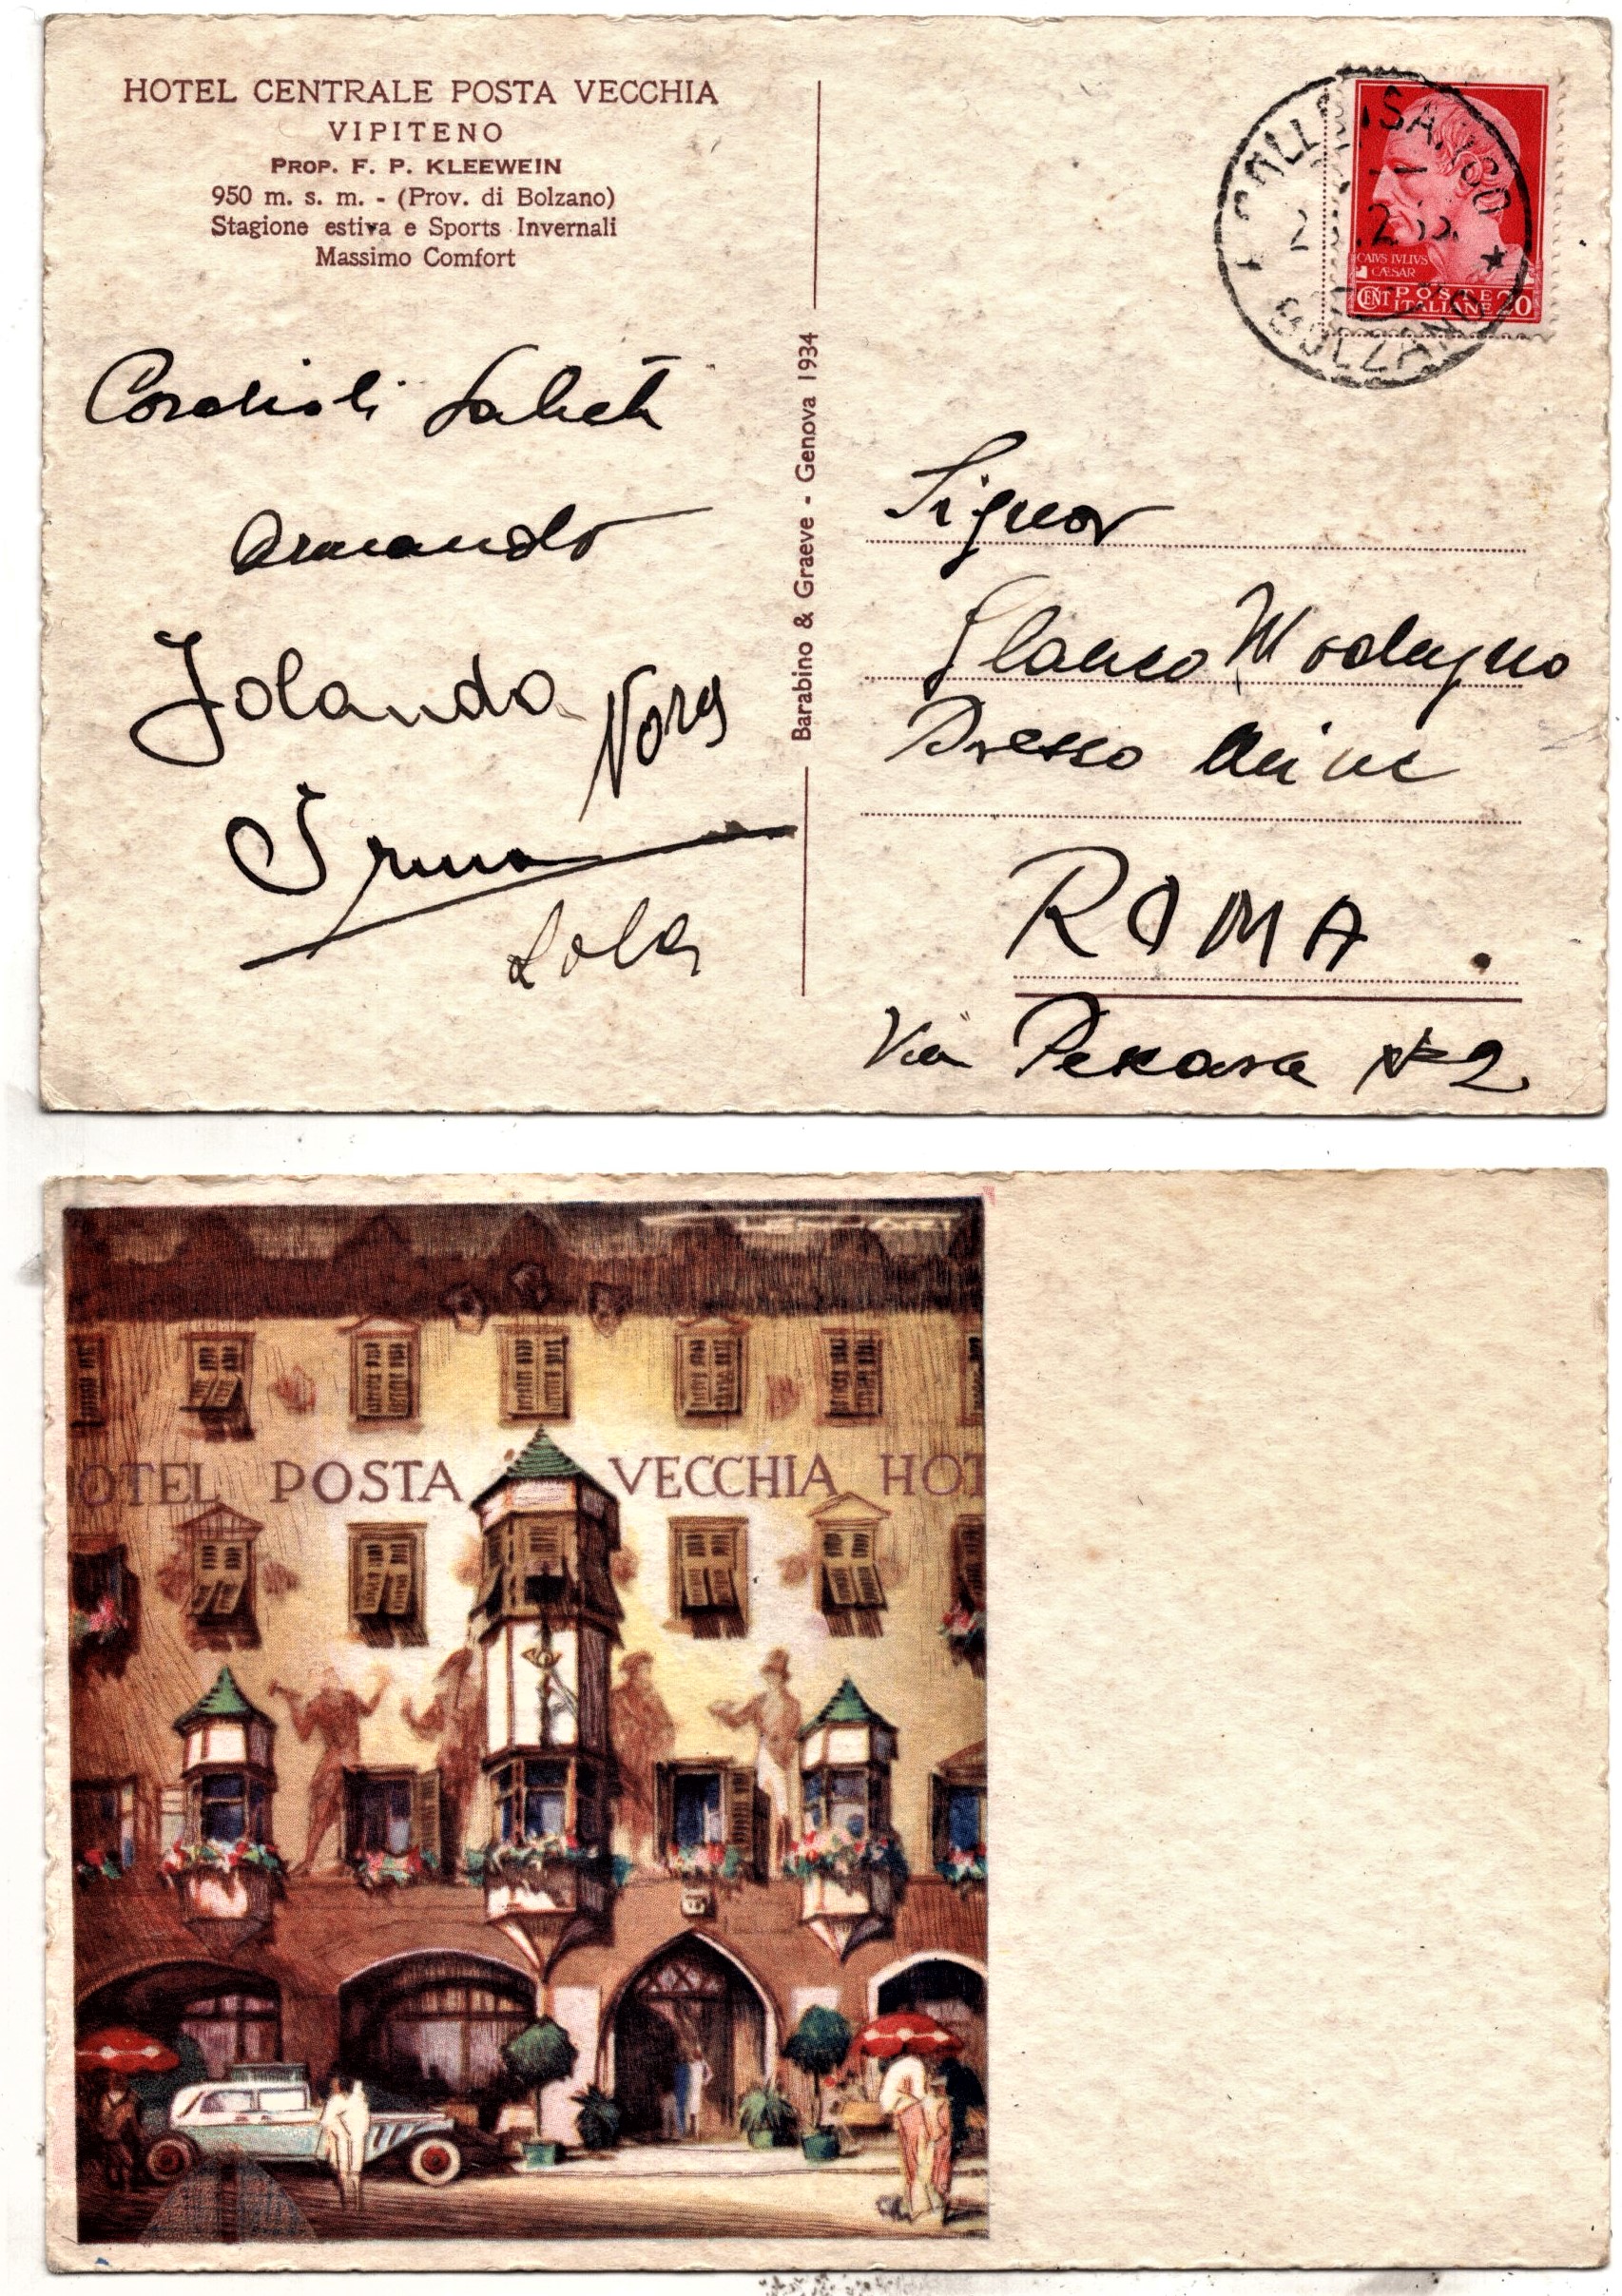 HOTEL CENTRALE POSTA VECCHIA
VIPITENO
PROP. F. P. KLEEWEIN
950 m. s. m. - (Prov. di Bolzano)
Stagione estiva e Sports Invernali
Massimo Comfort
Cordiali Saluti
Armando
Jolanda
Nora
Irma
Lola
Barabino & Graeve - Genova 1934
COLLE ISARCO
BOLZANO
CAIVS IVLIVS
CÆSAR
CENT POSTE
ITALIANE 20
Signor
Glauco Modugno
Presso
ROMA
Via Pescara N 2
OTEL POSTA VECCHIA HOT